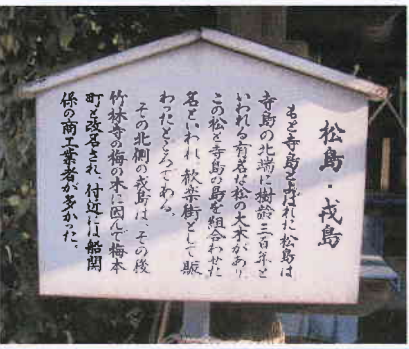 松島・戎島
もと寺島とよばれた松島は
寺島の北端に樹齢三百年と
いわれる有名な松の大木があり
この松と寺島の島を組合わせた
名といわれ、歓楽街として賑
わったところである。
その北側の戎島は、その後
竹林寺の梅の木に因んで梅本
町と改名され、付近には船関
係の商工業者が多かった。